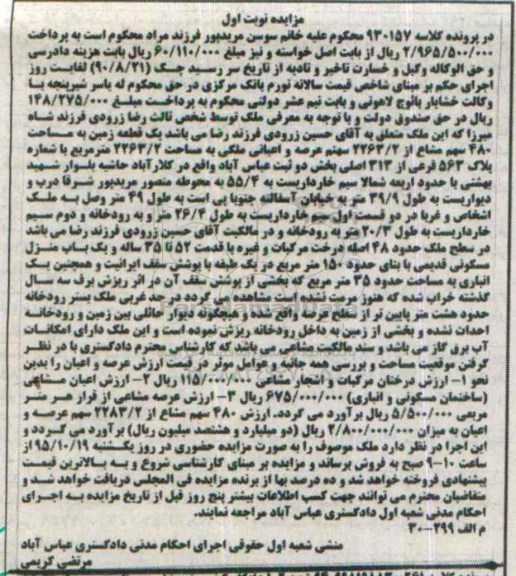 مزایده نوبت اول
در پرونده کلاسه ۹۳۰۱۵۷ محکوم علیه خانم سوسن مریدپور فرزند مراد محکوم است به پرداخت
۲/۹۶۵/۵۰۰/۰۰۰ ریال از بابت اصل خواسته و نیز مبلغ ۶۰/۱۱۰/۰۰۰ ریال بابت هزینه دادرسی
و حق الوکاله وکیل و خسارت تاخیر و تادیه از تاریخ سر رسید چک (۹۰/۸/۲۱) لغایت روز
اجرای حکم بر مبنای شاخص قیمت سالانه تورم بانک مرکزی در حق محکوم له یاسر شیرینجه با
وکالت خشایار یالوج لاهوتی و بابت نیم عشر دولتی محکوم به پرداخت مبلغ ۱۴۸/۲۷۵/۰۰۰
ریال در حق صندوق دولت و با توجه به معرفی ملک توسط شخص ثالث رضا زرودی فرزند شاه
میرزا که این ملک متعلق به آقای حسین زرودی فرزند رضا می باشد یک قطعه زمین به مساحت
۴۸۰ سهم مشاع از ۲۲۶۳/۲ سهم عرصه و اعیانی ملکی به مساحت ۲۲۶۳/۲ مترمربع با شماره
پلاک ۵۶۳ فرعی از ۳۱۳ اصلی بخش دو ثبت عباس آباد واقع در کلارآباد حاشیه بلوار شهید
بهشتی با حدود اربعه شمالا سیم خارداریست به ۵۵/۴ به محوطه منصور مریدپور شرقا درب و
دیواریست به طول ۳۹/۹ متر به خیابان آسفالته جنوبا پی است به طول ۴۹ متر وصل به ملک
اشخاص و غربا در دو قسمت اول سیم خارداریست به طول ۲۶/۴ متر و به رودخانه و دوم سیم
خارداریست به طول ۲۰/۳ متر به رودخانه و در مالکیت آقای حسین زرودی فرزند رضا می باشد
در سطح ملک حدود ۴۸ اصله درخت مرکبات و غیره با قدمت ۵۲ تا ۳۵ ساله و یک باب منزل
مسکونی قدیمی با بنای حدود ۱۵۰ متر مربع در یک طبقه با پوشش سقف ایرانیت و همچنین یک
انباری به مساحت حدود ۳۵ متر مربع که بخشی از پوشش سقف آن در اثر ریزش برف سه سال
گذشته خراب شده که هنوز مرمت نشده است مشاهده می گردد در حد غربی ملک بستر رودخانه
حدود هشت متر پایین تر از سطح عرصه واقع شده و هیچگونه دیوار حائلی بین زمین و رودخانه
احداث نشده و بخشی از زمین به داخل رودخانه ریزش نموده است و این ملک دارای امکانات
آب برق گاز می باشد و سند مالکیت مشاعی می باشد که کارشناس محترم دادگستری با در نظر
گرفتن موقعیت مساحت و بررسی همه جانبه و عوامل موثر در قیمت ارزش عرصه و اعیان را بدین
نحو ۱- ارزش درختان مرکبات و اشجار مشاعی ۱۱۵/۰۰۰/۰۰۰ ریال ۲- ارزش اعیان مشاعی
(ساختمان مسکونی و انباری) ۶۷۵/۰۰۰/۰۰۰ ریال ۳- ارزش عرصه مشاعی از قرار هر متر
مربعی ۵/۵۰۰/۰۰۰ ریال برآورد می گردد. ارزش ۴۸۰ سهم مشاع از ۲۲۸۳/۲ سهم عرصه و
اعیان به میزان ۲/۸۰۰/۰۰۰/۰۰۰ ریال (دو میلیارد و هشتصد میلیون ریال) برآورد می گردد و
این اجرا در نظر دارد ملک موصوف را به صورت مزایده حضوری در روز یکشنبه ۹۵/۱۰/۱۹ از
ساعت ۱۰-۹ صبح به فروش برساند و مزایده بر مبنای کارشناسی شروع و به بالاترین قیمت
پیشنهادی فروخته خواهد شد و ده درصد بها از برنده مزایده فی المجلس دریافت خواهد شد و
متقاضیان محترم می توانند جهت کسب اطلاعات بیشتر پنج روز قبل از تاریخ مزایده به اجرای
احکام مدنی شعبه اول دادگستری عباس آباد مراجعه نمایند.
م الف ۲۹۹-۳۰
منشی شعبه اول حقوقی اجرای احکام مدنی دادگستری عباس آباد
مرتضی کریمی